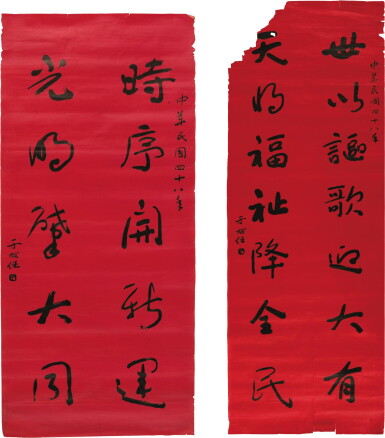 世以謳歌迎大有
中華民國四十八年
天將福祉降全民
于右任
時序開新運
中華民國四十八年
光明肇大同
于右任